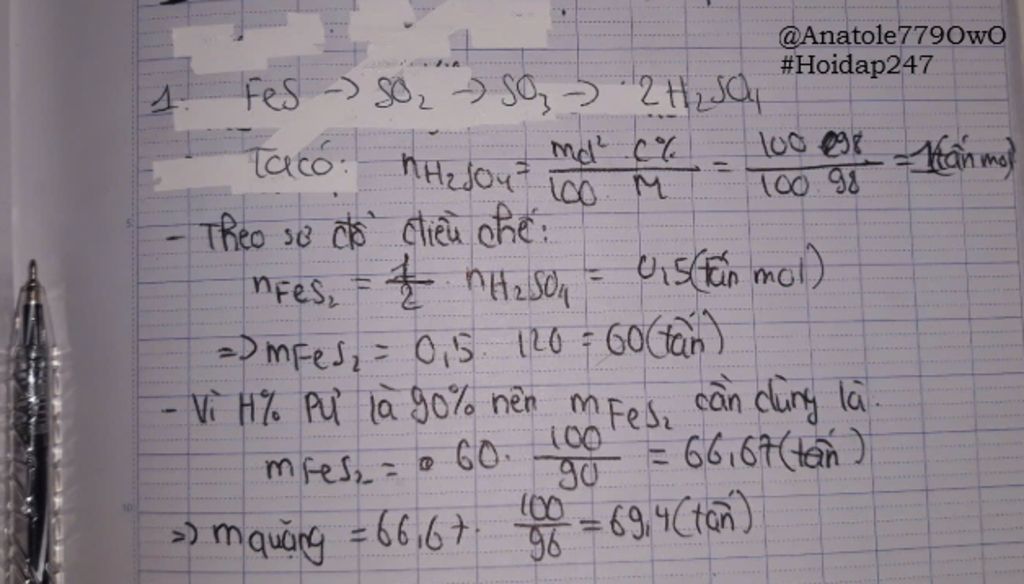 @Anatole779OwO
#Hoidap247
1. FeS → SO₂ → SO₃ → 2H₂SO₄
Ta có: nH₂SO₄ = mdd C% / 100 M = 100 98 / 100 98 = 1(tấn mol)
- Theo sơ đồ điều chế:
nFeS₂ = 1/2 nH₂SO₄ = 0,5(tấn mol)
=> mFeS₂ = 0,5. 120 = 60(tấn)
- Vì H% PƯ là 90% nên mFeS₂ cần dùng là.
mFeS₂ = 60. 100/90 = 66,67(tấn)
=> mquặng = 66,67. 100/96 = 69,4(tấn)